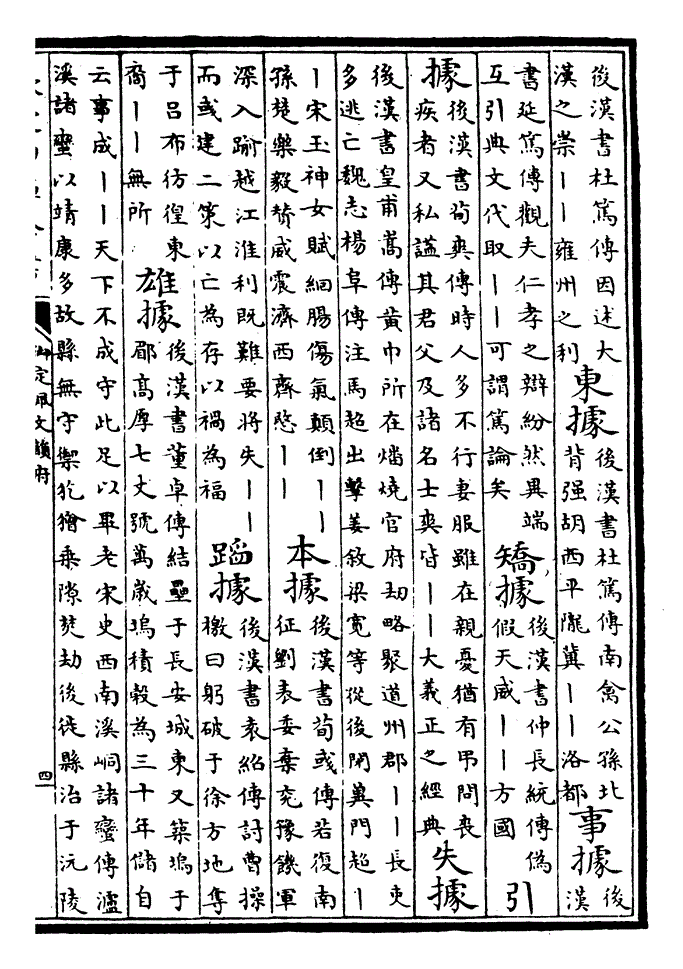 後漢書杜篤傳因述大
漢之崇丨丨雍州之利
東據
後漢書杜篤傳南禽公孫北
背强胡西平隴冀丨丨洛都
事據
後
漢
書延篤傳觀夫仁孝之辯紛然異端
互引典文代取丨丨可謂篤論矣
矯據
後漢書仲長統傳偽
假天威丨丨方國
引
據
後漢書荀爽傳時人多不行妻服雖在親憂猶有弔問喪
疾者又私諡其君父及諸名士爽皆丨丨大義正之經典
失據
後漢書皇甫嵩傳黄巾所在燔燒官府劫略聚道州郡丨丨長吏
多逃亡魏志楊阜傳注馬超出擊姜敘梁寛等從後閉冀門超丨
丨宋玉神女賦細腸傷氣顛倒丨丨
孫楚樂毅賛威震濟西齊愍丨丨
本據
後漢書荀或傳若復南
征劉表委棄兖豫饑軍
深入踰越江淮利既難要將失丨丨
而或建二策以亡為存以禍為福
蹈據
後漢書袁紹傳討曹操
檄曰躬破于徐方地奪
于呂布彷徨東
裔丨丨無所
雄據
後漢書董卓傳結壘于長安城東又築塢于
郿高厚七丈號萬歲塢積穀為三十年儲自
云事成丨丨天下不成守此足以畢老宋史西南溪峒諸蠻傳瀘
溪諸蠻以靖康多故縣無守禦犵獠乘隙焚劫後徙縣治于沅陵
御定佩文韻府
四